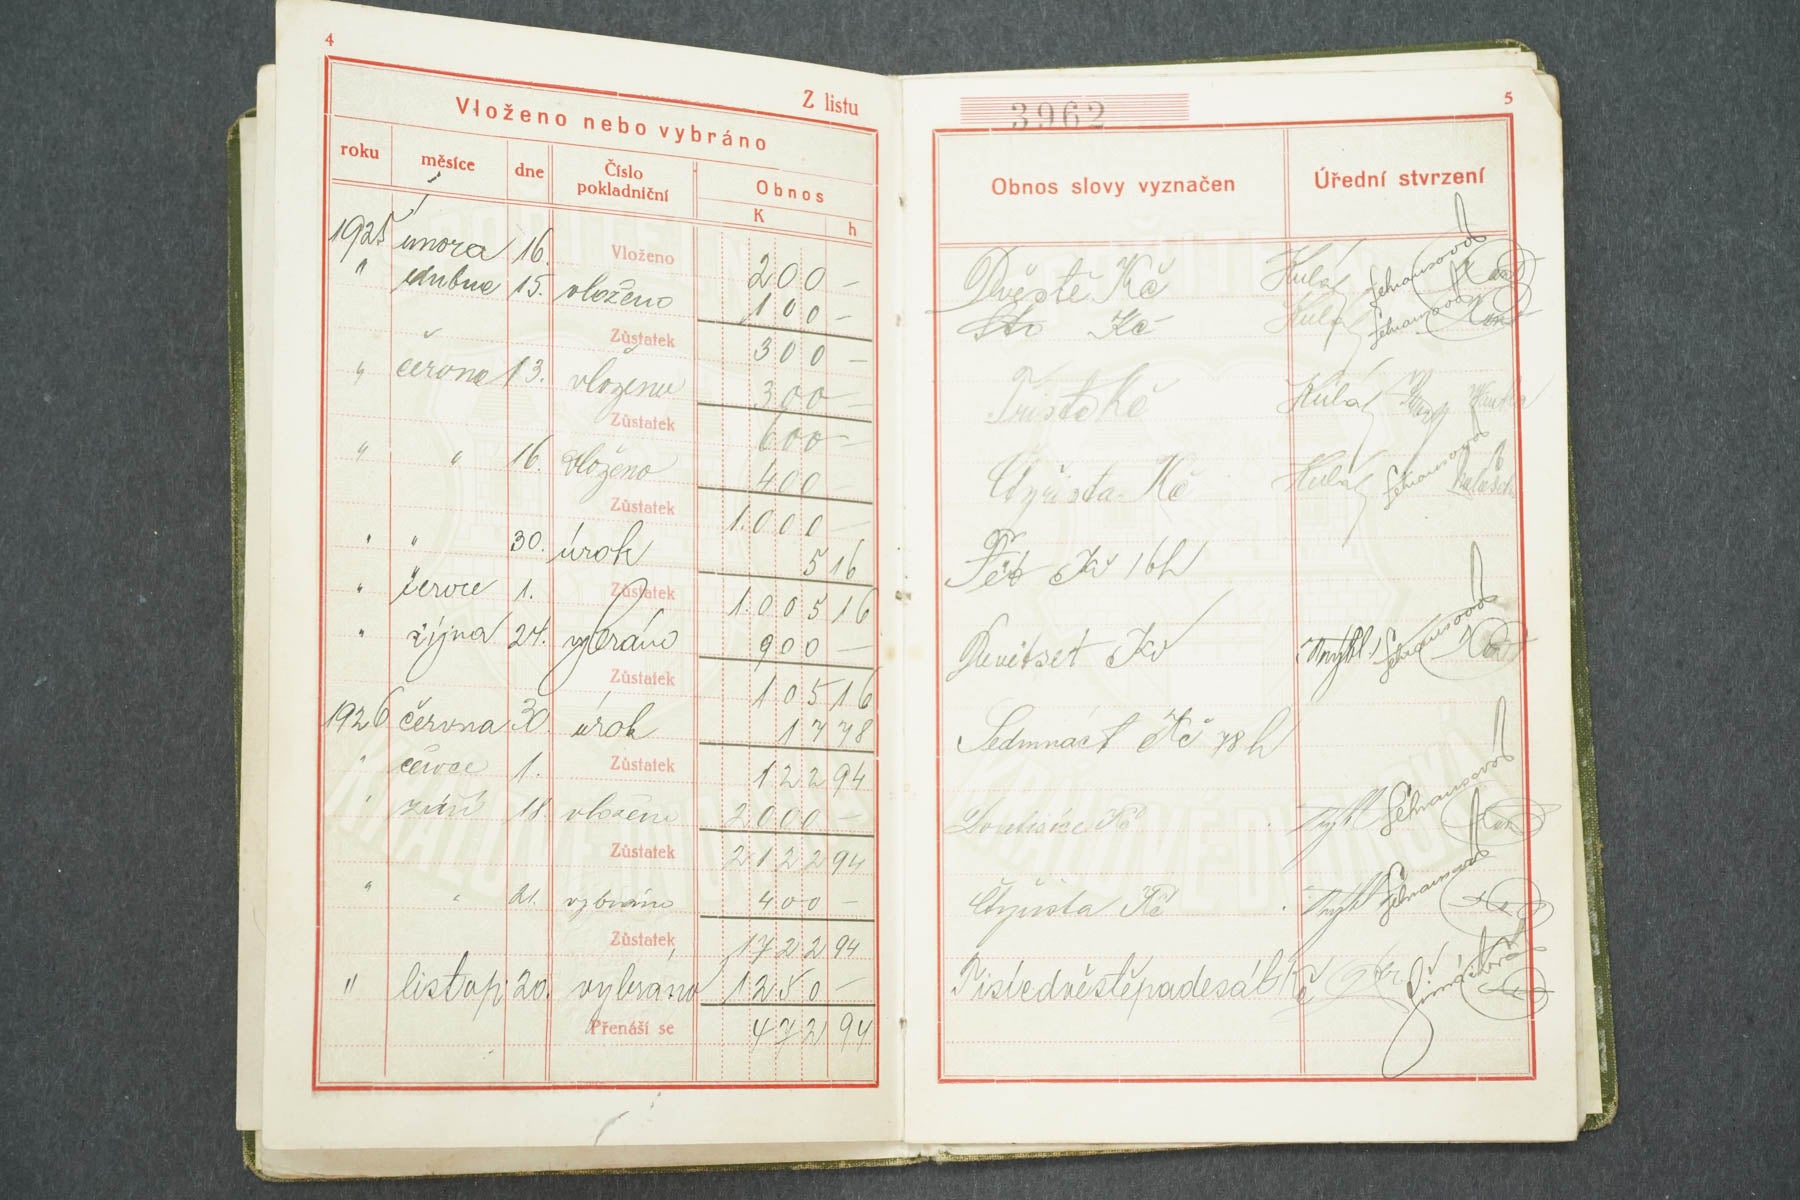 4
Z listu
Vloženo nebo vybráno
roku měsíce dne Číslo pokladniční Obnos
K h
1925 února 16. Vloženo 200 —
" dubna 15. vloženo 100 —
Zůstatek 300 —
" června 13. vloženo 300 —
Zůstatek 600 —
" " 16. vloženo 400 —
Zůstatek 1.000 —
" " 30. úrok 5 16
" července 1. Zůstatek 1.005 16
" října 24. vybráno 900 —
Zůstatek 105 16
1926 června 30. úrok 17 78
" července 1. Zůstatek 122 94
" září 18. vloženo 2000 —
Zůstatek 2122 94
" " 21. vybráno 400 —
Zůstatek 1722 94
" listop. 20. vybráno 1250 —
Přenáší se 472 94
3962
5
Obnos slovy vyznačen Úřední stvrzení
Dvěstě Kč
Sto Kč
Třista Kč
Čtyřista Kč
Pět Kč 16 h
Devětset Kč
Sedmnáct Kč 78 h
Dvatisíce Kč
Čtyřista Kč
Tisícdvěstěpadesát Kč